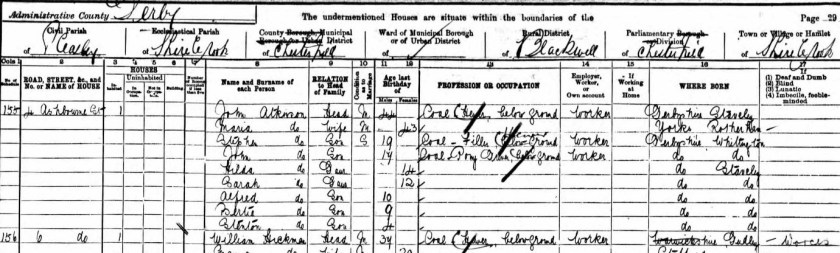 Administrative County Derby The undermentioned Houses are situate within the boundaries of the Page 29
Civil Parish Ecclesiastical Parish County Borough Municipal Ward of Municipal Borough Rural District, Parliamentary Borough Town or Village or Hamlet
Borough or Urban District or of Urban District or Division
of of Shirebrook of Chesterfield of of Blackwell of Chesterfield of Shirebrook
Cols. 1 2 3 4 5 6 7 8 9 10 11 12 13 14 15 16 17
No. of Schedule ROAD, STREET, &c., and No. or NAME of HOUSE HOUSES Inhabited Uninhabited In Occupation Not in Occupation Building Name and Surname of each Person RELATION to Head of Family Condition as to Marriage Age last Birthday of Males Females PROFESSION OR OCCUPATION Employer, Worker, or Own account If Working at Home WHERE BORN (1) Deaf and Dumb (2) Blind (3) Lunatic (4) Imbecile, feeble-minded
155 4 Ashbourne St 1 John Atkinson Head M 44 Coal Hewer below ground Worker Derbyshire Stavely
Maria do Wife M 43 Yorks Rotherham
Stephen do Son S 19 Coal Filler below Ground Worker Derbyshire Whittington
John do Son 14 Coal Pony below ground Worker do do
Hilda do Daur 14 do Stavely
Sarah do Daur 12 do do
Alfred do Son 10 do do
Bertie do Son 9 do do
do Son 4 do do
156 6 do 1 William Hickman Head M 34 Coal Hewer below ground Worker Dudley Worces